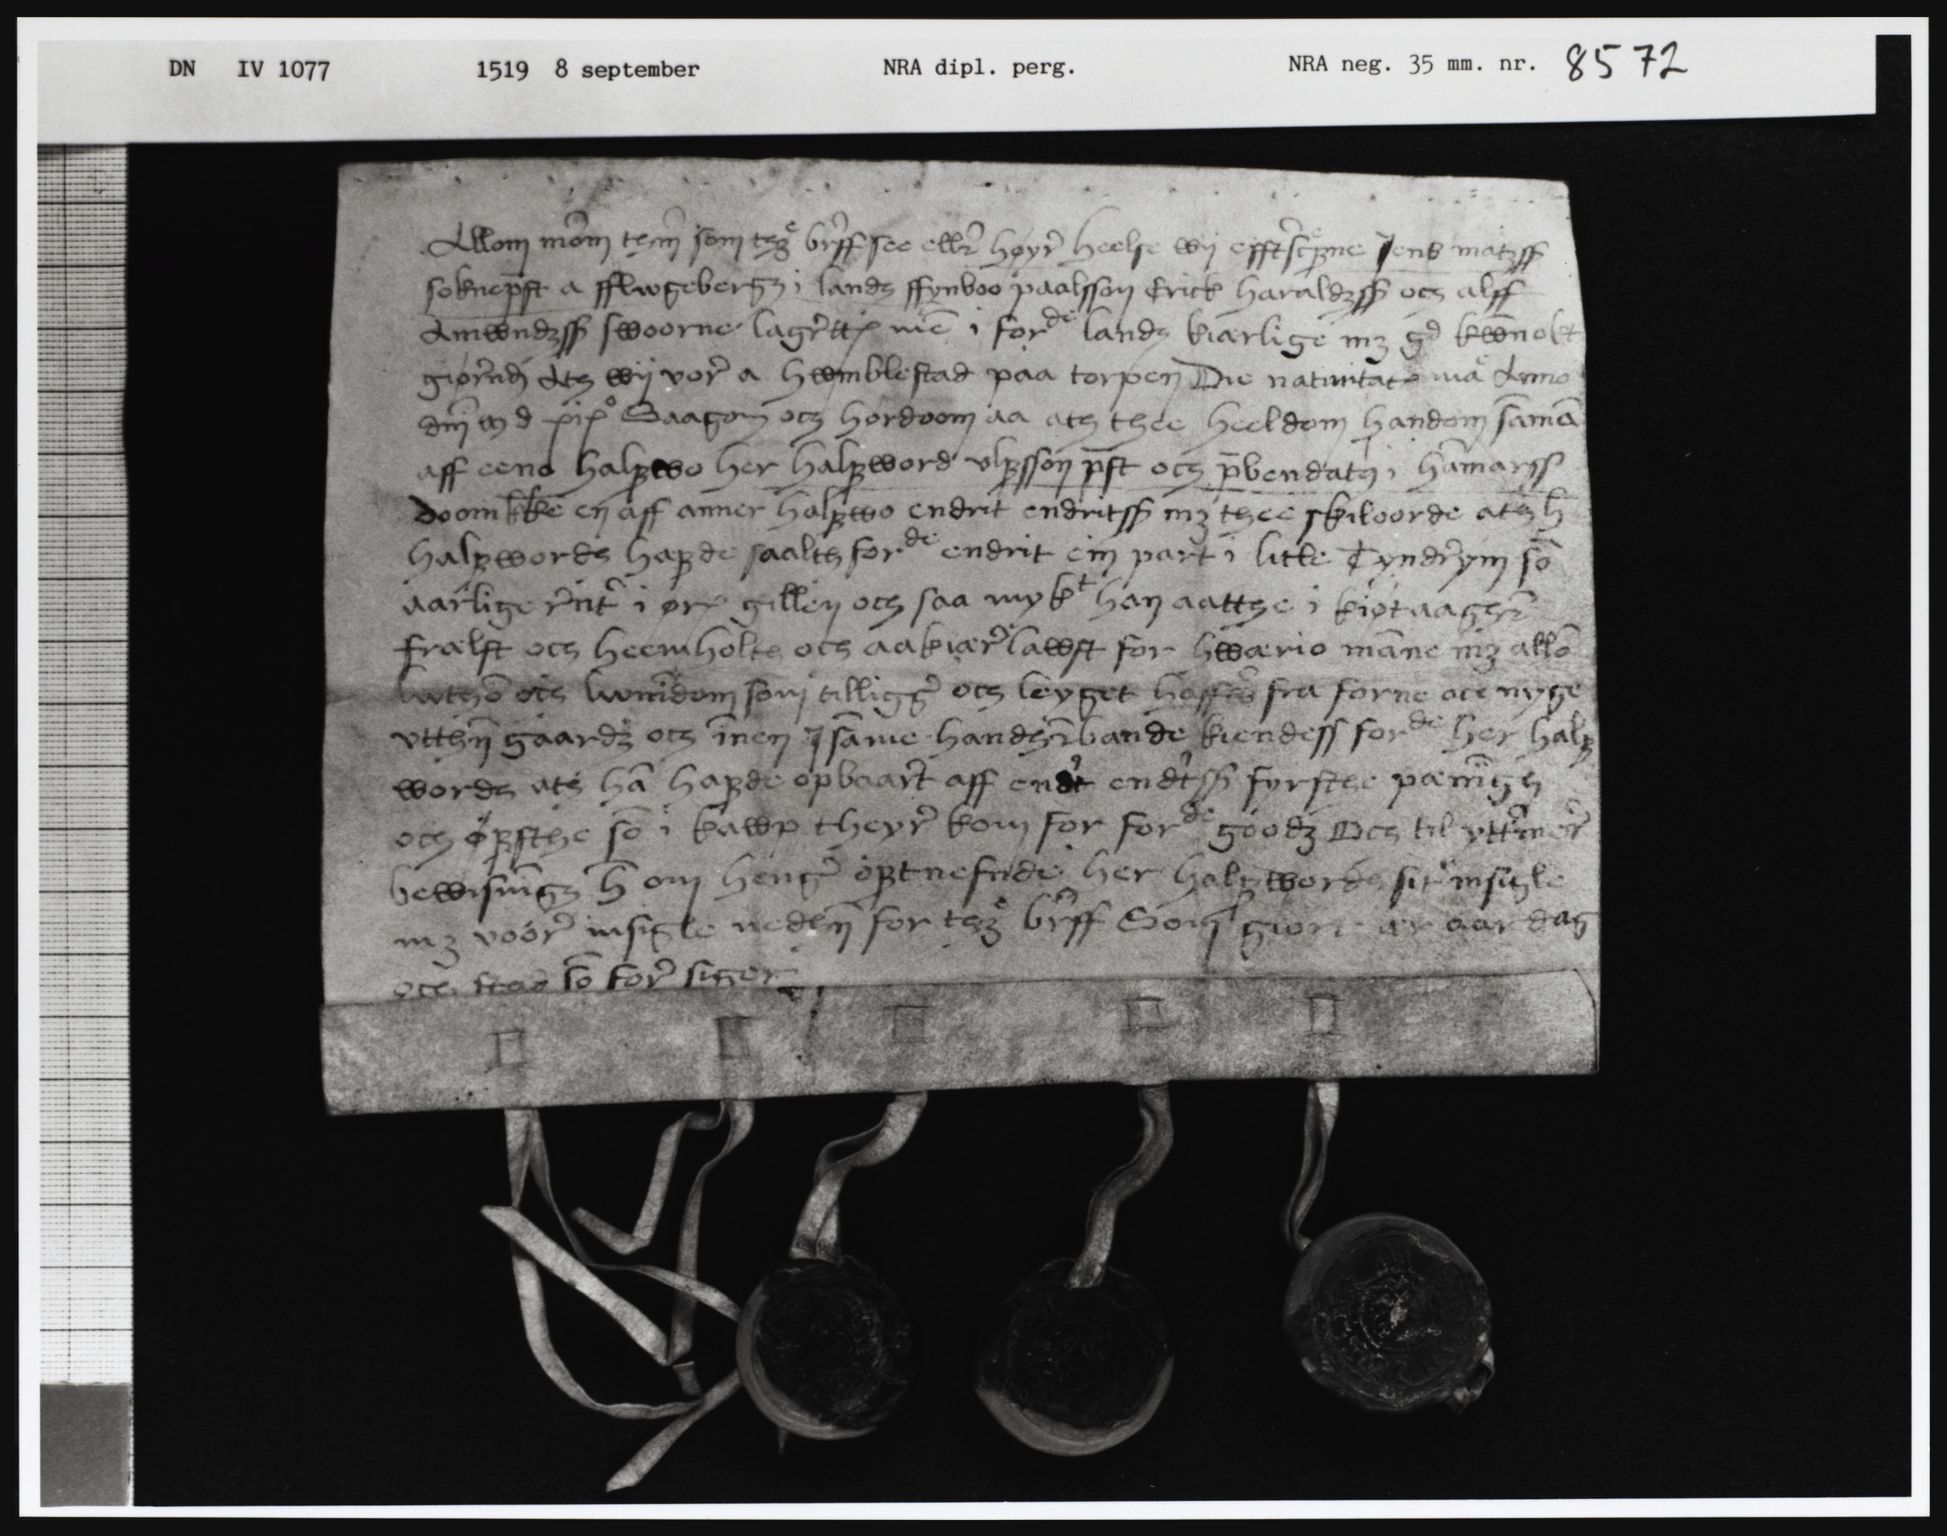 DN IV 1077 1519 8 september NRA dipl. perg. NRA neg. 35 mm. nr. 8572
Allom mōm them som thz breff see eller høyr heelse wij efftscrne Jens matzss
soknepst a fflwgebergz i landz ffynboo paalsson Erick haraldzss och alff
Amwndzss swoorne lagrett men i forde landz kiærlige mz gd kwnokt
giørendh Ath wij vor a hwmblestad paa torpen Die natiuitat ma Anno
dni m d xix° Saagom och hordoom aa ath thee heeldom handom saman
aff eeno halffwo her halffword vlffsson pst och pbendath i hamarss
doomkke en aff anner halffwo endrit endritss mz thee skiloorde ath h
halffwordh haffde saalth forde endrit ein part i litle Tyndrym som
aarlige rent i ører gillen och saa mykt han aatthe i kiøtaagher
frælst och heemholt och aakiær lawst for hwærio manne mz allom
lwthom och lwnidom som tilligger och leyget haffuer fra forne och nyge
vtthen gaardz och innen J same handherbande kiendess forde her halff
wordh ath han haffde opbaart aff endt endtss fyrsthe pæningh
och øffsthe som i kawp theyr kom for forde goodz Och til yttermer
bewisningh h om henger offtnefnde her halffwordh sit insigle
mz voor insigle nedhen for thz breff Som giort ær aar dag
och stad som for siger